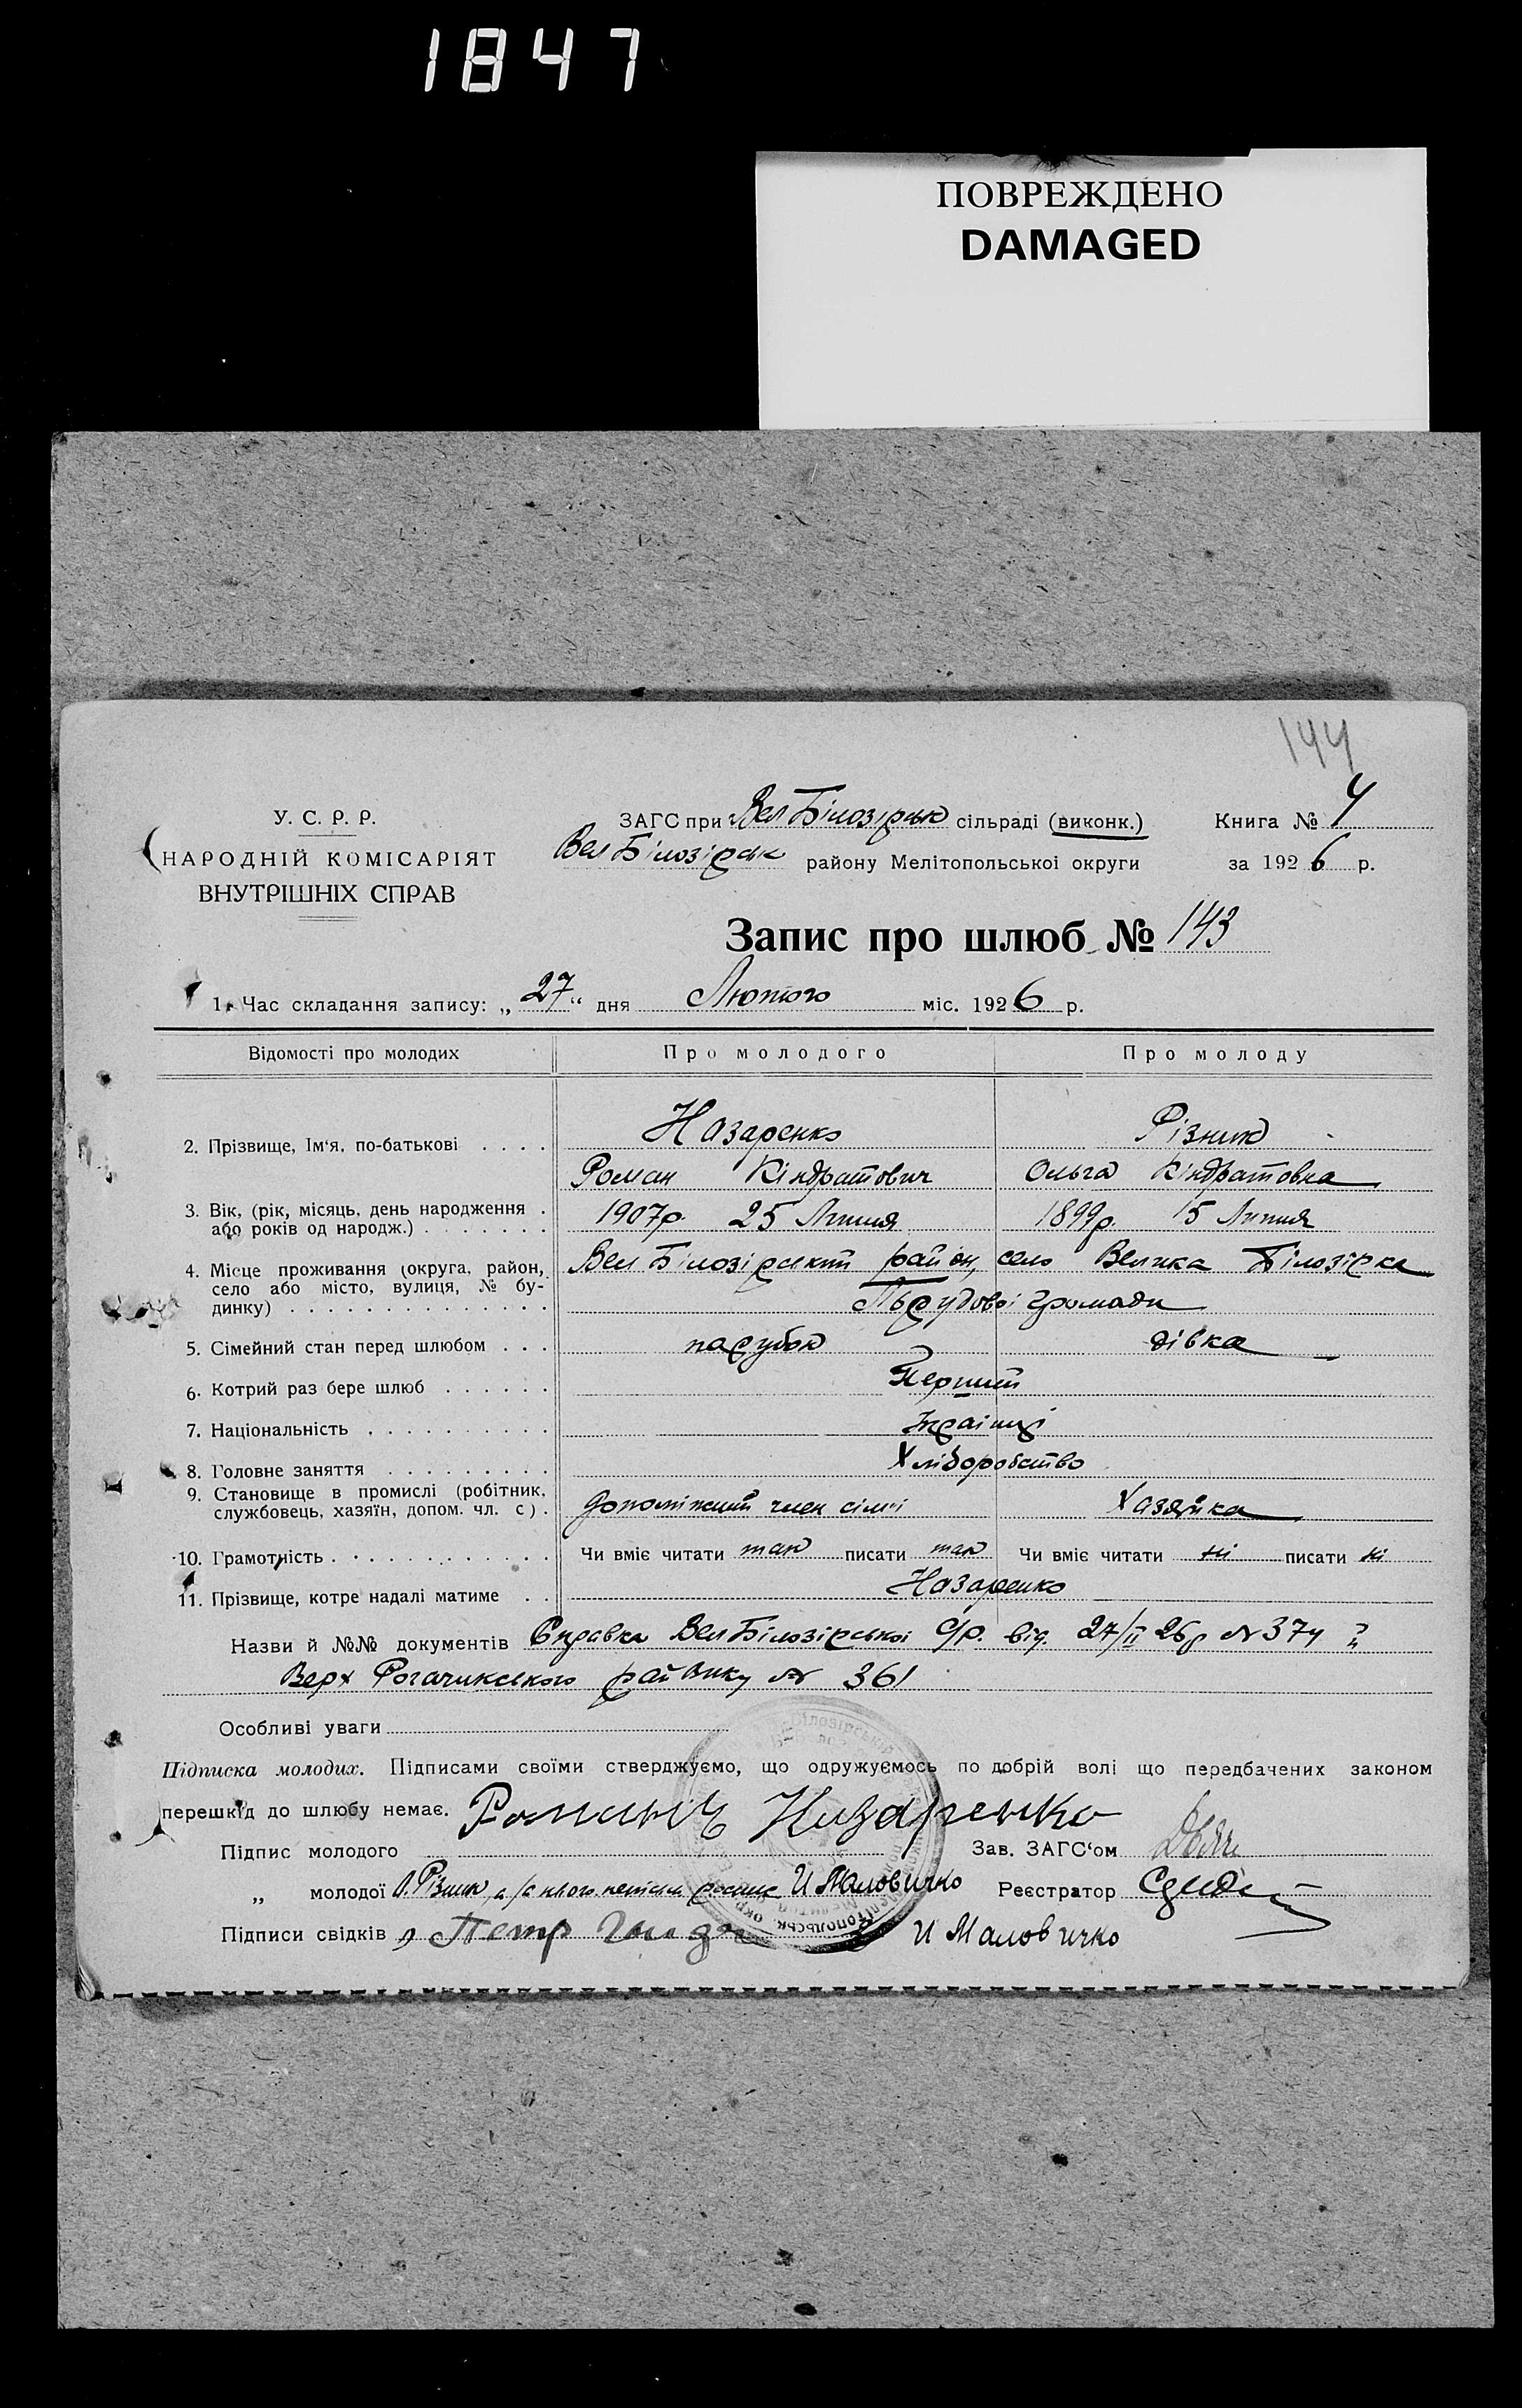 1847
ПОВРЕЖДЕНО
DAMAGED
144
У. С. Р. Р.
НАРОДНІЙ КОМІСАРІЯТ
ВНУТРІШНІХ СПРАВ
ЗАГС при Вел Білозірськ сільраді (виконк.)
Вел Білозірськ району Мелітопольської округи
Книга № 4
за 1926 р.
Запис про шлюб № 143
1. Час складання запису: „27“ дня Лютого міс. 1926 р.
Відомості про молодих Про молодого Про молоду
2. Прізвище, Ім'я, по-батькові . . . . Назаренко Різник
Роман Кіндратович Ольга Кіндратовна
3. Вік, (рік, місяць, день народження . 1907р. 25 Липня 1899р. 15 Липня
або років од народж.) . . . . . . .
4. Місце проживання (округа, район, Вел Білозірський район, село Велика Білозірка
село або місто, вулиця, № бу-
динку) . . . . . . . . . . . . . . громади
5. Сімейний стан перед шлюбом . . . парубок дівка
6. Котрий раз бере шлюб . . . . . . Перший
7. Національність . . . . . . . . . . Українці
8. Головне заняття . . . . . . . . . Хліборобство
9. Становище в промислі (робітник,
службовець, хазяїн, допом. чл. с) . допоміжний член сімї Хазяйка
10. Грамотність . . . . . . . . . . . . Чи вміє читати так писати так Чи вміє читати ні писати ні
11. Прізвище, котре надалі матиме . . Назаренко
Назви й №№ документів Справка Вел Білозірської с/р. від 27/II 26р № 374
Верх Рогачикського райвику № 361
Особливі уваги
Підписка молодих. Підписами своїми стверджуємо, що одружуємось по добрій волі що передбачених законом
перешкід до шлюбу немає. Романъ Назаренко
Підпис молодого Зав. ЗАГС'ом
„ молодої О. Різник а за неї И Маловичко Реєстратор
Підписи свідків Петр И Маловичко